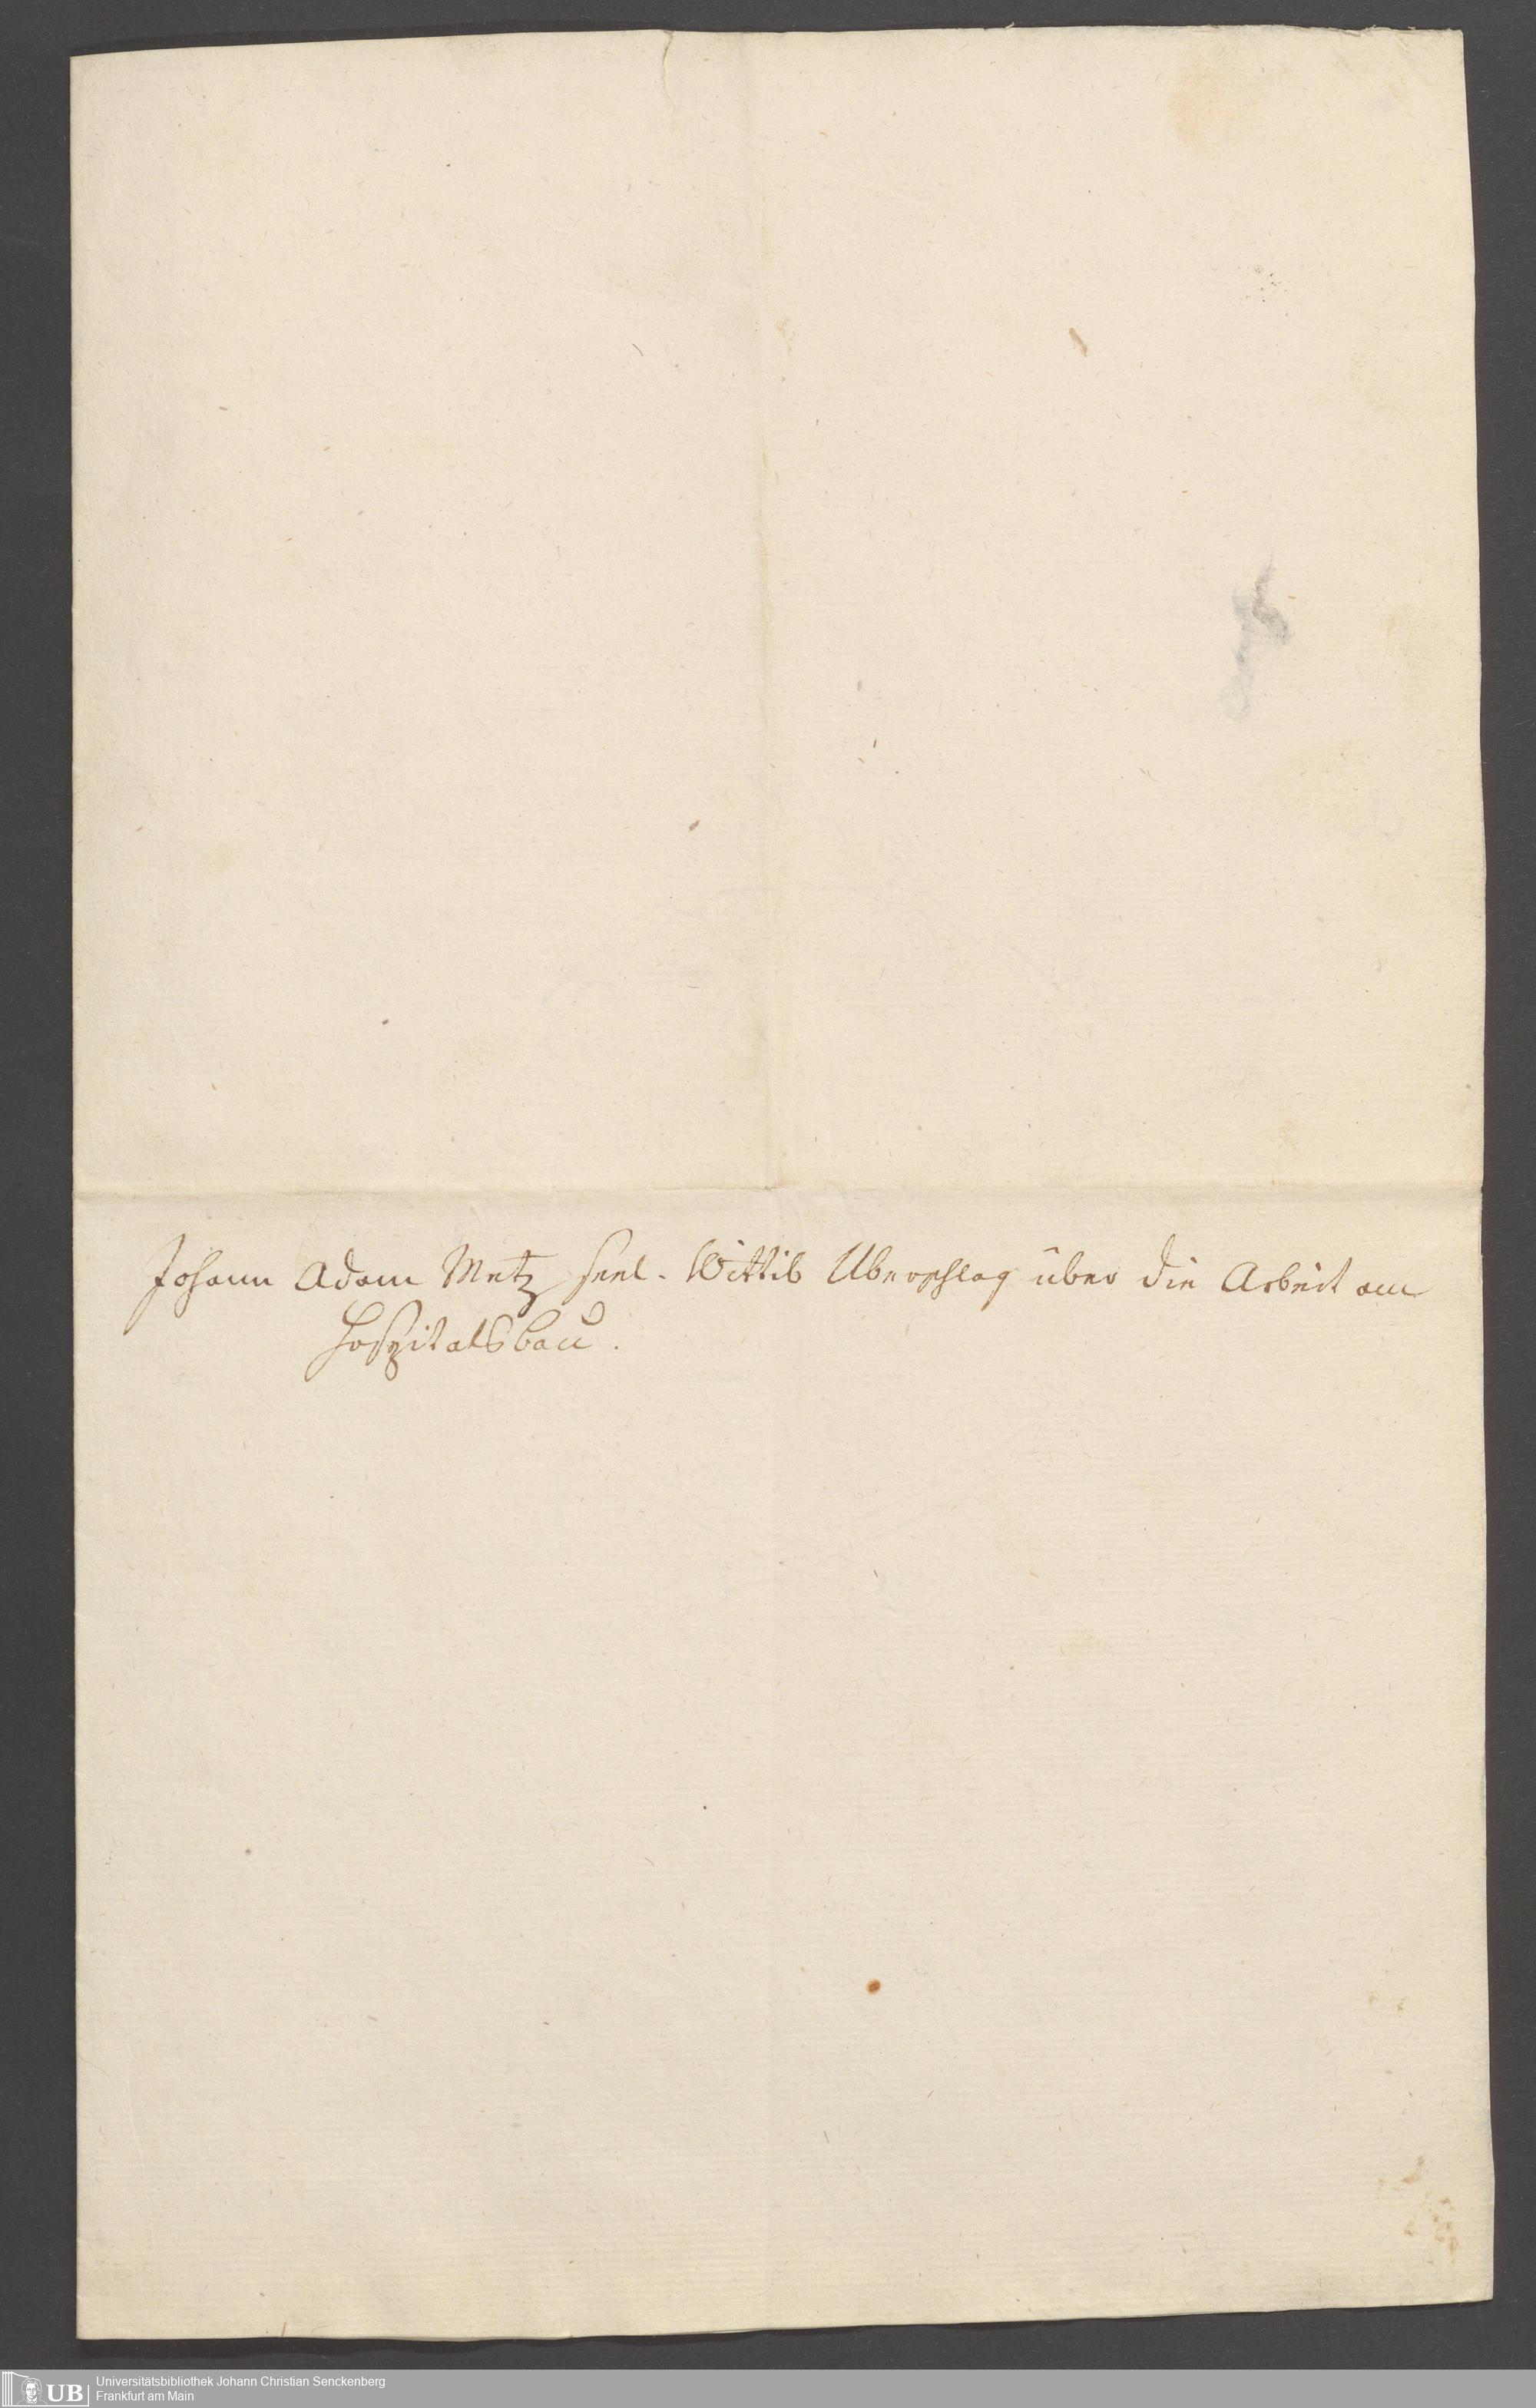 Johann Adam Metz seel. Wittib Uberschlag über die Arbeit am
Hospitalsbau.
UB
Universitätsbibliothek Johann Christian Senckenberg
Frankfurt am Main